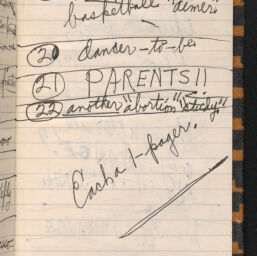 basketball "aimers
20 dancer-to-be
21 PARENTS!!
22 another "abortion" study"
Each a 1-pager.